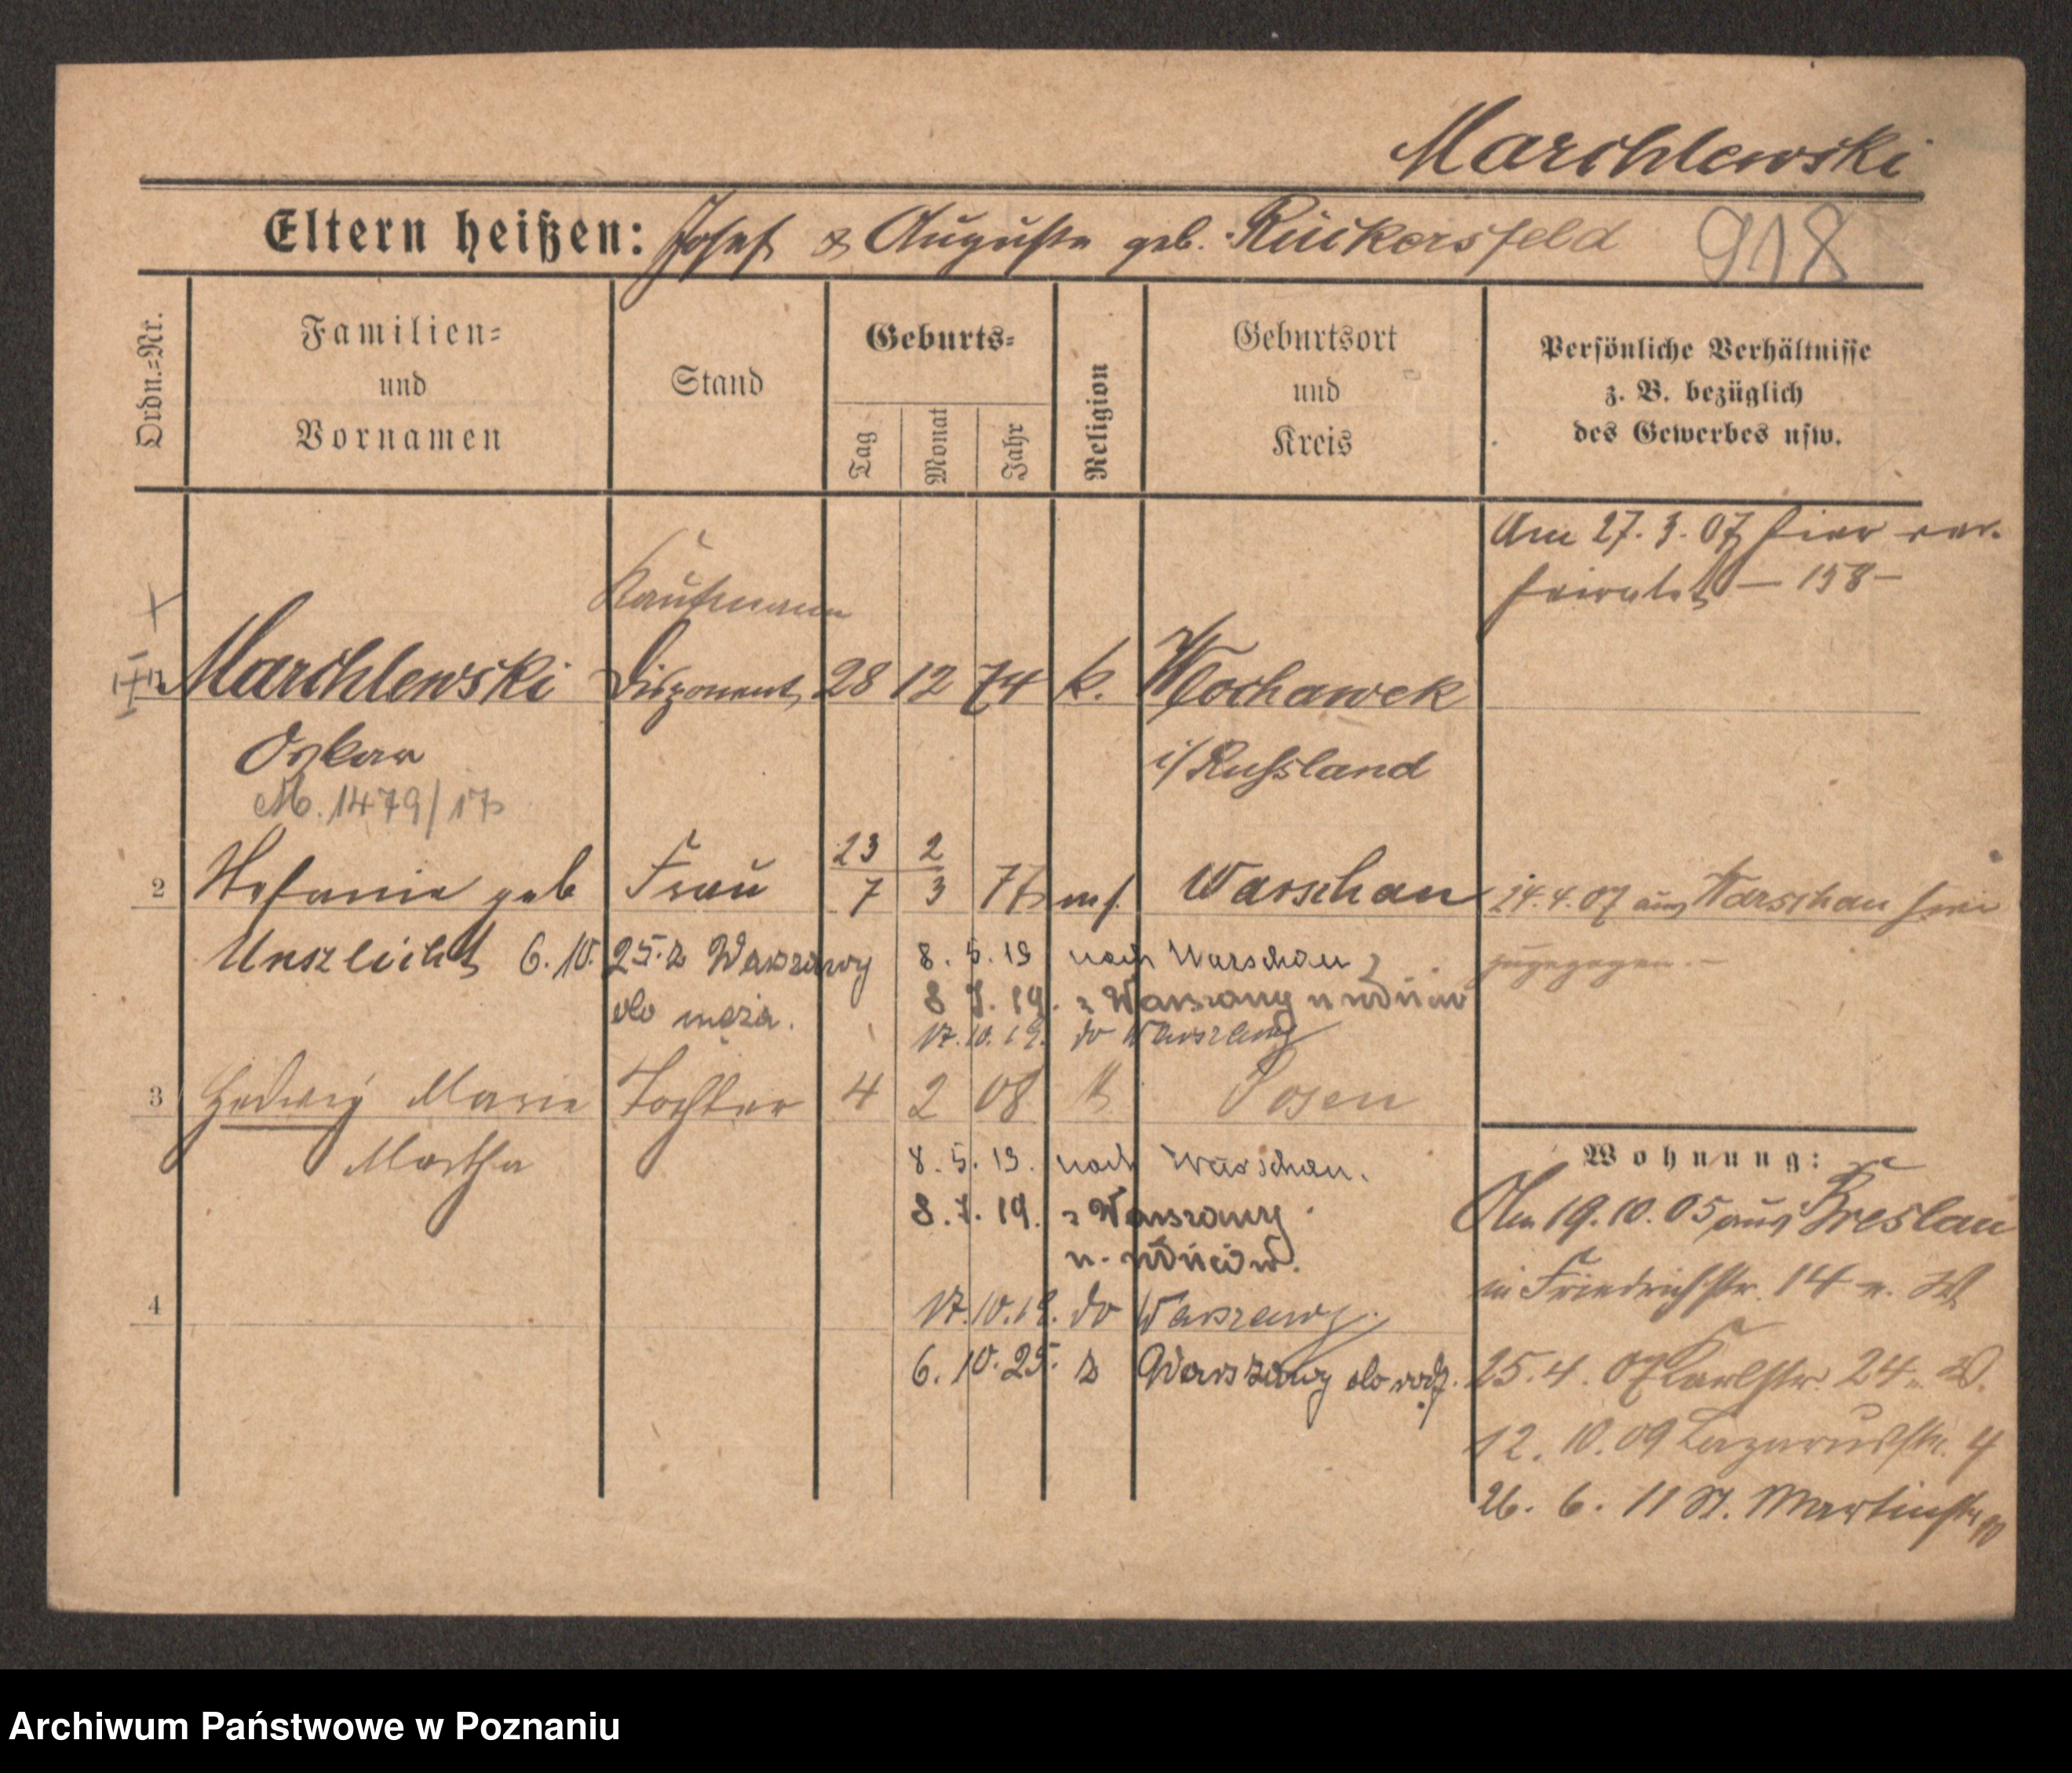 Marchlewski
Eltern heißen: Josef & Auguste geb. Rückersfeld 918
Ordn.=Nr.
Familien=
und
Vornamen
Stand
Geburts=
Tag
Monat
Jahr
Religion
Geburtsort
und
Kreis
Persönliche Verhältnisse
z. B. bezüglich
des Gewerbes usw.
Am 27. 3. 07 hier ver-
heiratet — 158 —
Kaufmann
Marchlewski Disponent 28 12 74 k. Wlochawek
Oskar i/Russland
M. 1479/17
23 2
2 Stefanie geb Frau 7 3 77 Warschau 24. 4. 07 aus Warschau hier
Unszlicht 6. 10. 25. z Warszawy 8. 5. 19 nach Warschau zugezogen. —
do męża. 8 7. 19. z Warszawy
17. 10. 19. do Warszawy
3 Hedwig Marie Tochter 4 2 08 k Posen
Martha 8. 5. 19. nach Warschau.
8. 7. 19. z Warszawy
17. 10. 19. do Warszawy
4
6. 10. 25. z Warszawy do rodz.
Wohnung:
Am 19. 10. 05 aus Breslau
in Friedrichstr. 14
25. 4. 07 Karlstr. 24
12. 10. 09 Lazarusstr. 4
26. 6. 11 St. Martinstr
Archiwum Państwowe w Poznaniu